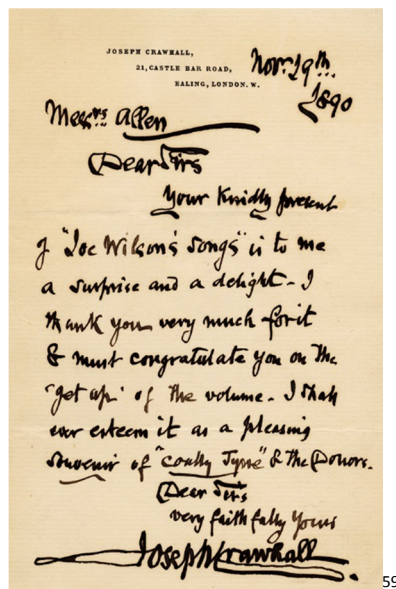 JOSEPH CRAWHALL,
21, CASTLE BAR ROAD,
EALING, LONDON. W.
Novr. 19th.
1890
Messrs. Allen
Dear Sirs
Your kindly present
of "Joe Wilson's Songs" is to me
a surprise and a delight - I
thank you very much for it
& must congratulate you on the
"get up" of the volume - I shall
ever esteem it as a pleasing
souvenir of "coally Tyne" & the Donors.
Dear Sirs
very faithfully Yours
Joseph Crawhall
59